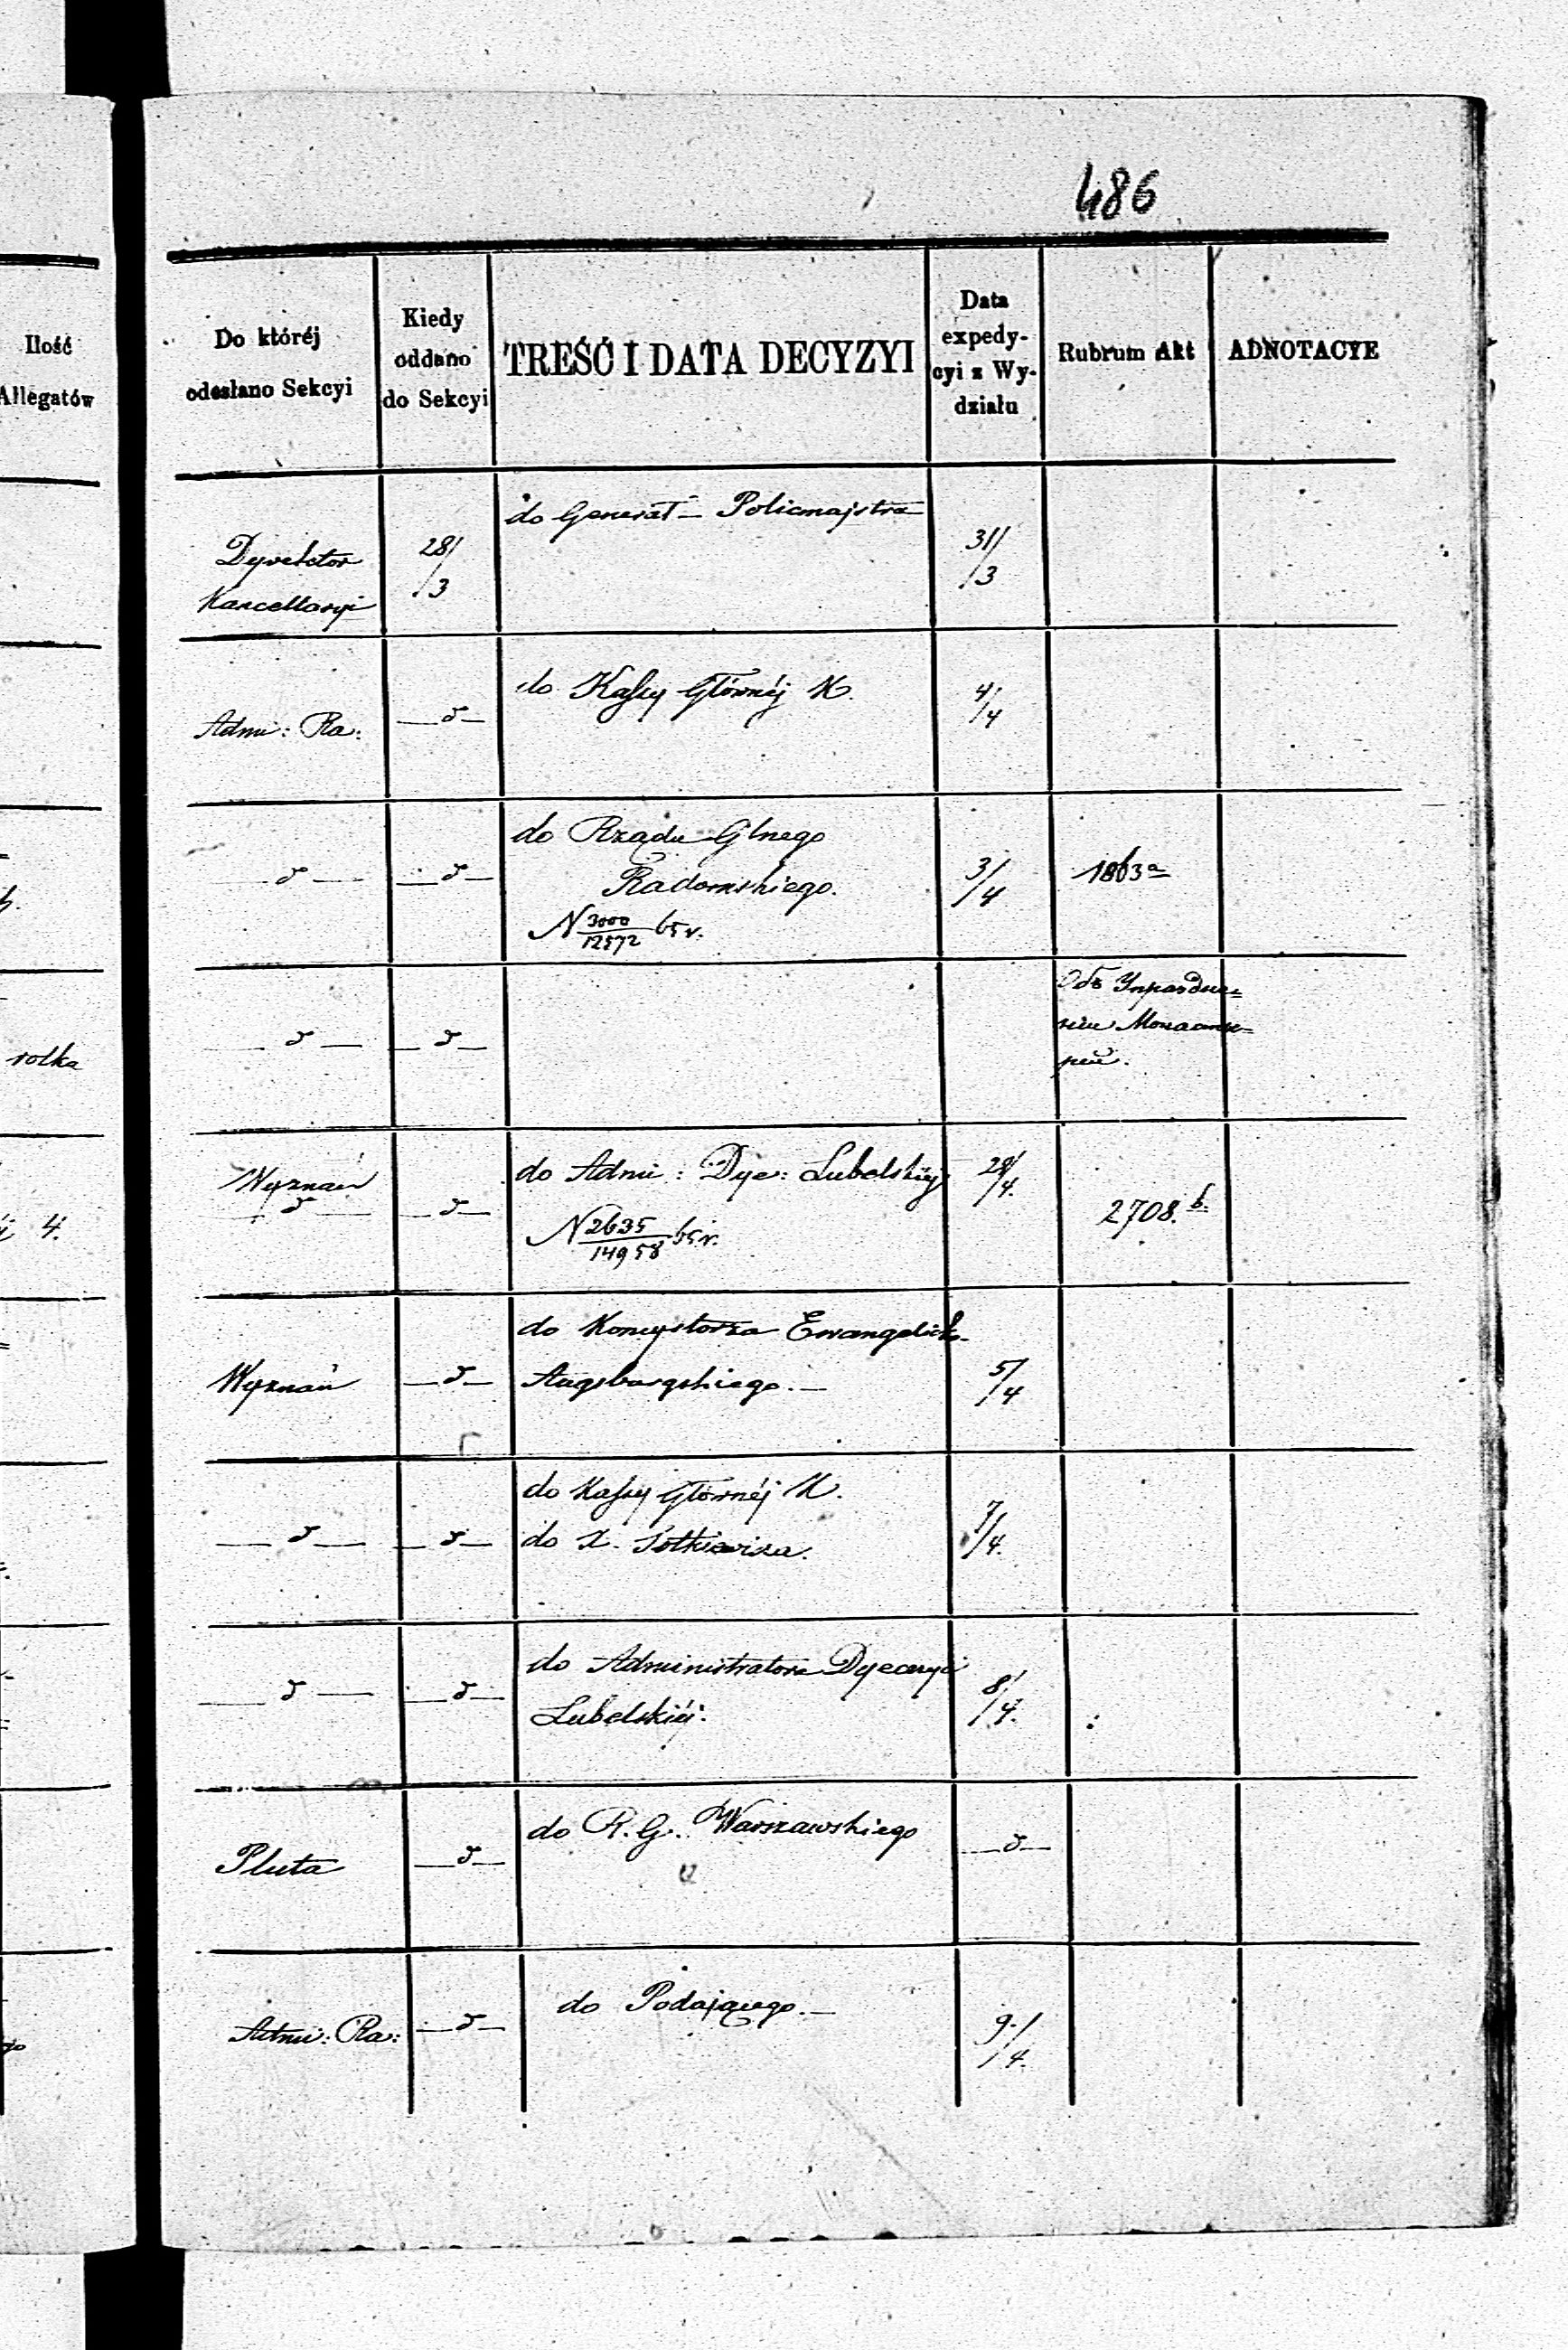 486
Ilość
Allegatów
Do któréj
odesłano Sekcyi
Kiedy
oddano
do Sekcyi
TREŚĆ I DATA DECYZYI
Data
expedy-
cyi z Wy-
działu
Rubrum Akt
ADNOTACYE
Dyrektor
Kancellaryi
28/
/3
do Generał – Policmajstra
31/
/3
Admi: Ra:
— d —
do Kassy Głównéj K.
4/
/4
— d —
— d —
do Rządu Glnego
Radomskiego.
N 3000/12572 65 r.
3/
/4
1863 a
— d —
— d —
Объ Упраздне=
ніи Монасты=
рей.
rolka
Wyznań
— d —
— d —
do Admi: Dye: Lubelskiéj
N 2635/14958 65 r.
28/
/4.
2708. b.
4.
Wyznań
— d —
do Konsystorza Ewangelicko-
Augsburgskiego. —
5/
/4
— d —
— d —
do Kassy Głównéj K.
do X.
7/
/4.
— d —
— d —
do Administratora Dyecezyi
Lubelskiéj.
8/
/4.
Pluta
— d —
do R. G. Warszawskiego
— d —
Admi: Ra:
— d —
do Podającego. —
9/
/4.